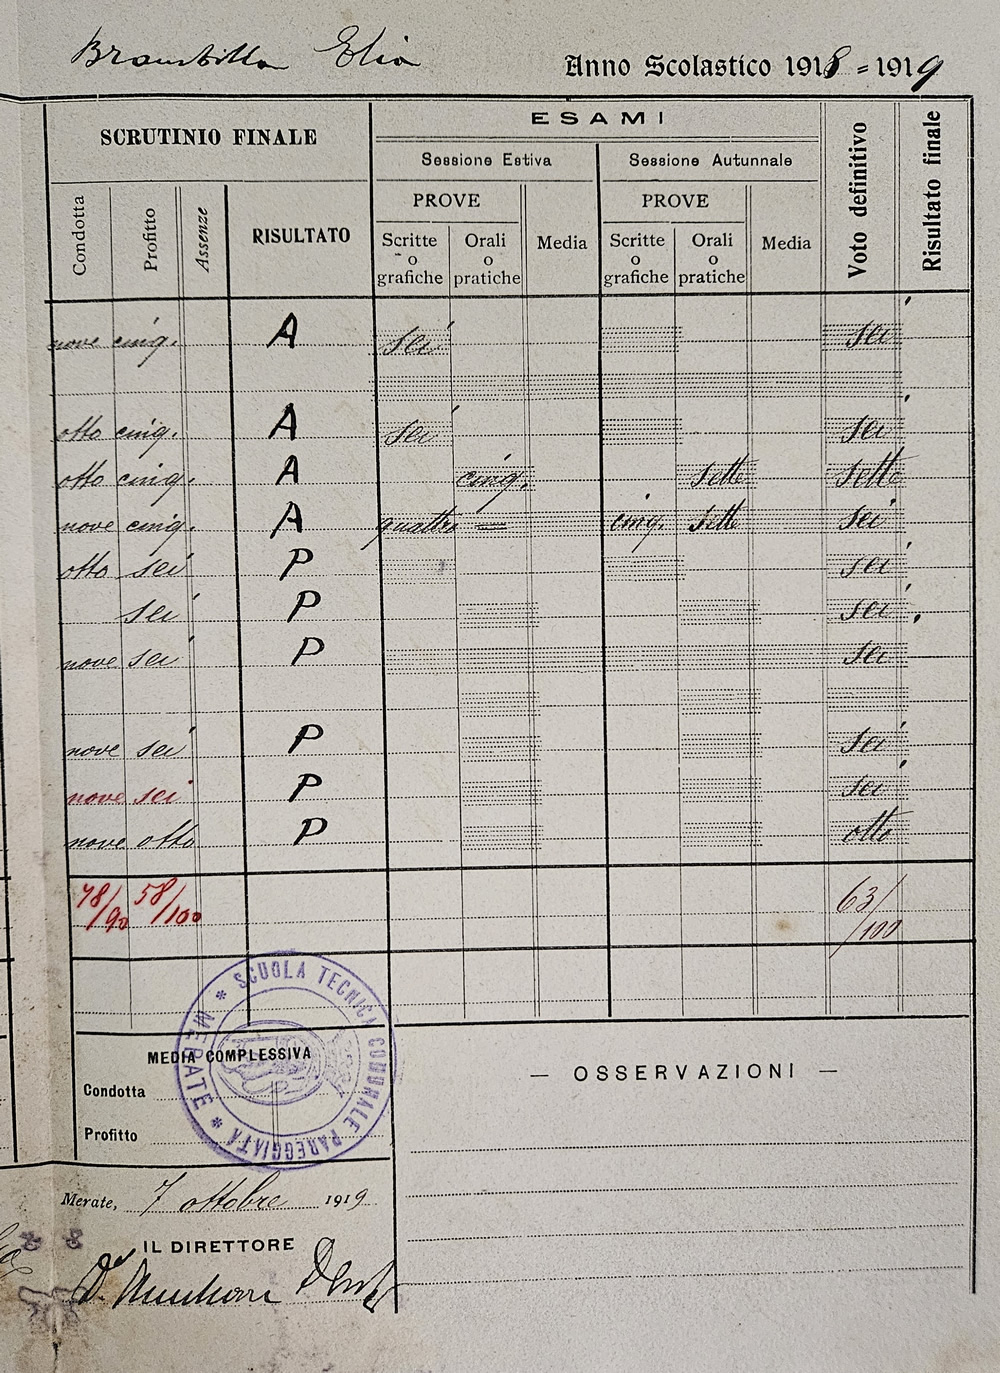 Brambilla Elia Anno Scolastico 1918=1919
SCRUTINIO FINALE
ESAMI
Voto definitivo
Risultato finale
Sessione Estiva
Sessione Autunnale
Condotta
Profitto
Assenze
RISULTATO
PROVE
PROVE
Scritte o grafiche
Orali o pratiche
Media
Scritte o grafiche
Orali o pratiche
Media
nove cinq. A sei sei
otto cinq. A sei sei
otto cinq. A cinq. sette sette
nove cinq. A quattro = cinq. sette sei
otto sei P sei
sei P sei
nove sei P sei
nove sei P sei
nove sei P sei
nove otto P otto
78/90 58/100 63/100
* SCUOLA TECNICA COMUNALE PAREGGIATA * MERATE
MEDIA COMPLESSIVA
Condotta
Profitto
— OSSERVAZIONI —
Merate, 7 ottobre 1919
IL DIRETTORE